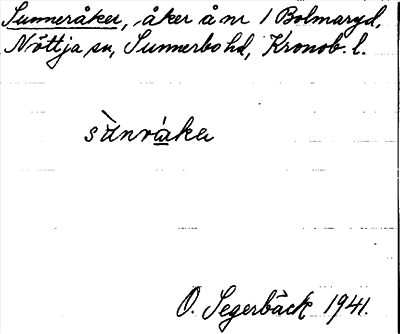 Sunneråker, åker å nr 1 Bolmaryd,
Nöttja sn, Sunnerbo hd, Kronob. l.
sùnråker
O. Segerbäck 1941.